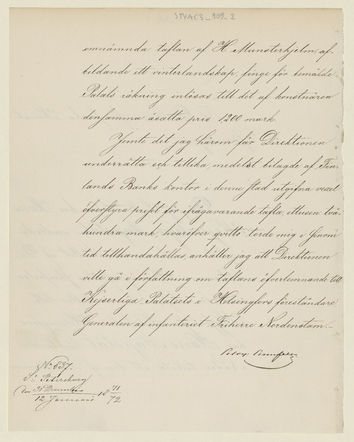 STYACS_909_2
omnämnda taflan af H. Munsterhjelm, af-
bildande ett vinterlandskap, finge för bemälde
Palats räkning inlösas till det af konstnären
densamma åsatta pris 1200 mark.
Jemte det jag härom får Direktionen
underrätta och tillika medelst bilagde af Fin-
lands Banks kontor i denne stad utgifna vexel
öfverstyra priset för ifrågavarande tafla ettusen två-
hundra mark, hvaröfver qvitto torde mig i sinom
tid tillhandahållas anhåller jag att Direktionen
ville gå i författning om taflans öfverlemnande till
Kejserliga Palatsets i Helsingfors föreståndare
Generalen af infanteriet Friherre Nordenstam.
No 637.
St Petersburg
den 31 December
12 Januari 18 71/72